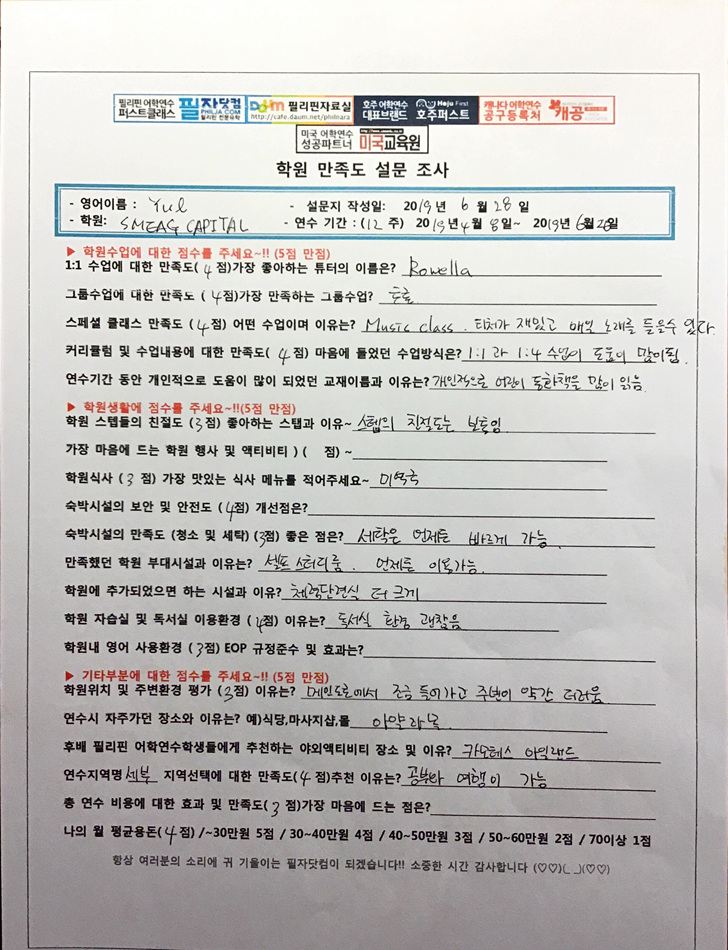 필리핀 어학연수 퍼스트클래스 필자닷컴 PHILJA.COM 필리핀 전문유학 Daum 필리핀자료실 http://cafe.daum.net/philnara 호주 어학연수 대표브랜드 Hoju First 호주퍼스트 캐나다 어학연수 공구등록처 캐공
미국 어학연수 성공파트너 미국교육원
학원 만족도 설문 조사
- 영어이름 : Yul - 설문지 작성일: 2019년 6월 28일
- 학원: SMEAG CAPITAL - 연수 기간 : (12 주) 2019년 4월 8일~ 2019년 6월 28일
▶ 학원수업에 대한 점수를 주세요~!! (5점 만점)
1:1 수업에 대한 만족도( 4 점)가장 좋아하는 튜터의 이름은? Rowella
그룹수업에 대한 만족도 ( 4점)가장 만족하는 그룹수업? 토론
스페셜 클래스 만족도 (4점) 어떤 수업이며 이유는? Music class. 티처가 재밌고 매일 노래를 들을수 있다.
커리큘럼 및 수업내용에 대한 만족도( 4 점) 마음에 들었던 수업방식은? 1:1 과 1:4 수업이 도움이 많이됨.
연수기간 동안 개인적으로 도움이 많이 되었던 교재이름과 이유는? 개인적으로 어린이 동화책을 많이 읽음
▶ 학원생활에 점수를 주세요~!!(5점 만점)
학원 스텝들의 친절도 (3점) 좋아하는 스탭과 이유~ 스텝의 친절도는 보통임.
가장 마음에 드는 학원 행사 및 액티비티 ) ( 점) ~
학원식사 ( 3 점) 가장 맛있는 식사 메뉴를 적어주세요~ 미역국
숙박시설의 보안 및 안전도 ( 4점) 개선점은?
숙박시설의 만족도 (청소 및 세탁) (3점) 좋은 점은? 세탁은 언제든 빠르게 가능.
만족했던 학원 부대시설과 이유는? 셀프 스터디룸. 언제든 이용가능.
학원에 추가되었으면 하는 시설과 이유? 체력단련실 더 크게
학원 자습실 및 독서실 이용환경 ( 4점) 이유는? 독서실 환경 괜찮음
학원내 영어 사용환경 ( 3점) EOP 규정준수 및 효과는?
▶ 기타부분에 대한 점수를 주세요~!! (5점 만점)
학원위치 및 주변환경 평가 (3점) 이유는? 메인도로에서 조금 들어가고 주변이 약간 더러움
연수시 자주가던 장소와 이유는? 예)식당,마사지샵,몰 아얄라몰
후배 필리핀 어학연수학생들에게 추천하는 야외액티비티 장소 및 이유? 카모테스 아일랜드
연수지역명 세부 지역선택에 대한 만족도(4 점)추천 이유는? 공부와 여행이 가능
총 연수 비용에 대한 효과 및 만족도( 3 점)가장 마음에 드는 점은?
나의 월 평균용돈(4 점) /~30만원 5점 / 30~40만원 4점 / 40~50만원 3점 / 50~60만원 2점 / 70이상 1점
항상 여러분의 소리에 귀 기울이는 필자닷컴이 되겠습니다!! 소중한 시간 감사합니다 (♡♡)(_ _)(♡♡)